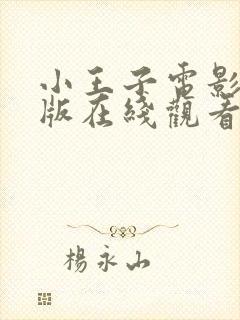 小王子電影
版在綫觀看
楊永山